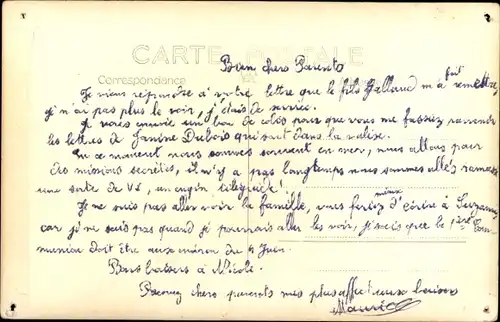 CARTE POSTALE
Correspondance
Bien chers Parents
Je viens répondre à votre lettre que le fils Galland m'a fait remettre,
je n'ai pas plus le voir, j'étais de service.
Je vous envoie un bon de colis pour que vous me fassiez parvenir
les lettres de Janine Dubois qui sont dans la valise.
En ce moment nous sommes souvent en mer, nous allons pour
des missions secrètes, il n'y a pas longtemps nous sommes allés ramasser
une sorte de V1, un engin téléguidé!
Je ne suis pas aller voir la famille, vous feriez mieux d'écrire à Suzanne
car je ne sais pas quand je pourrais aller les voir, je sais que la 1ère Com
munion doit être aux environ du 4 Juin.
Bons baisers à Nicole.
Recevez chers parents mes plus affectueux baisers
Maurice